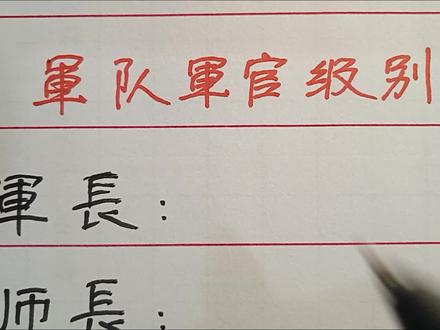 軍队軍官级别
軍長：
师長：